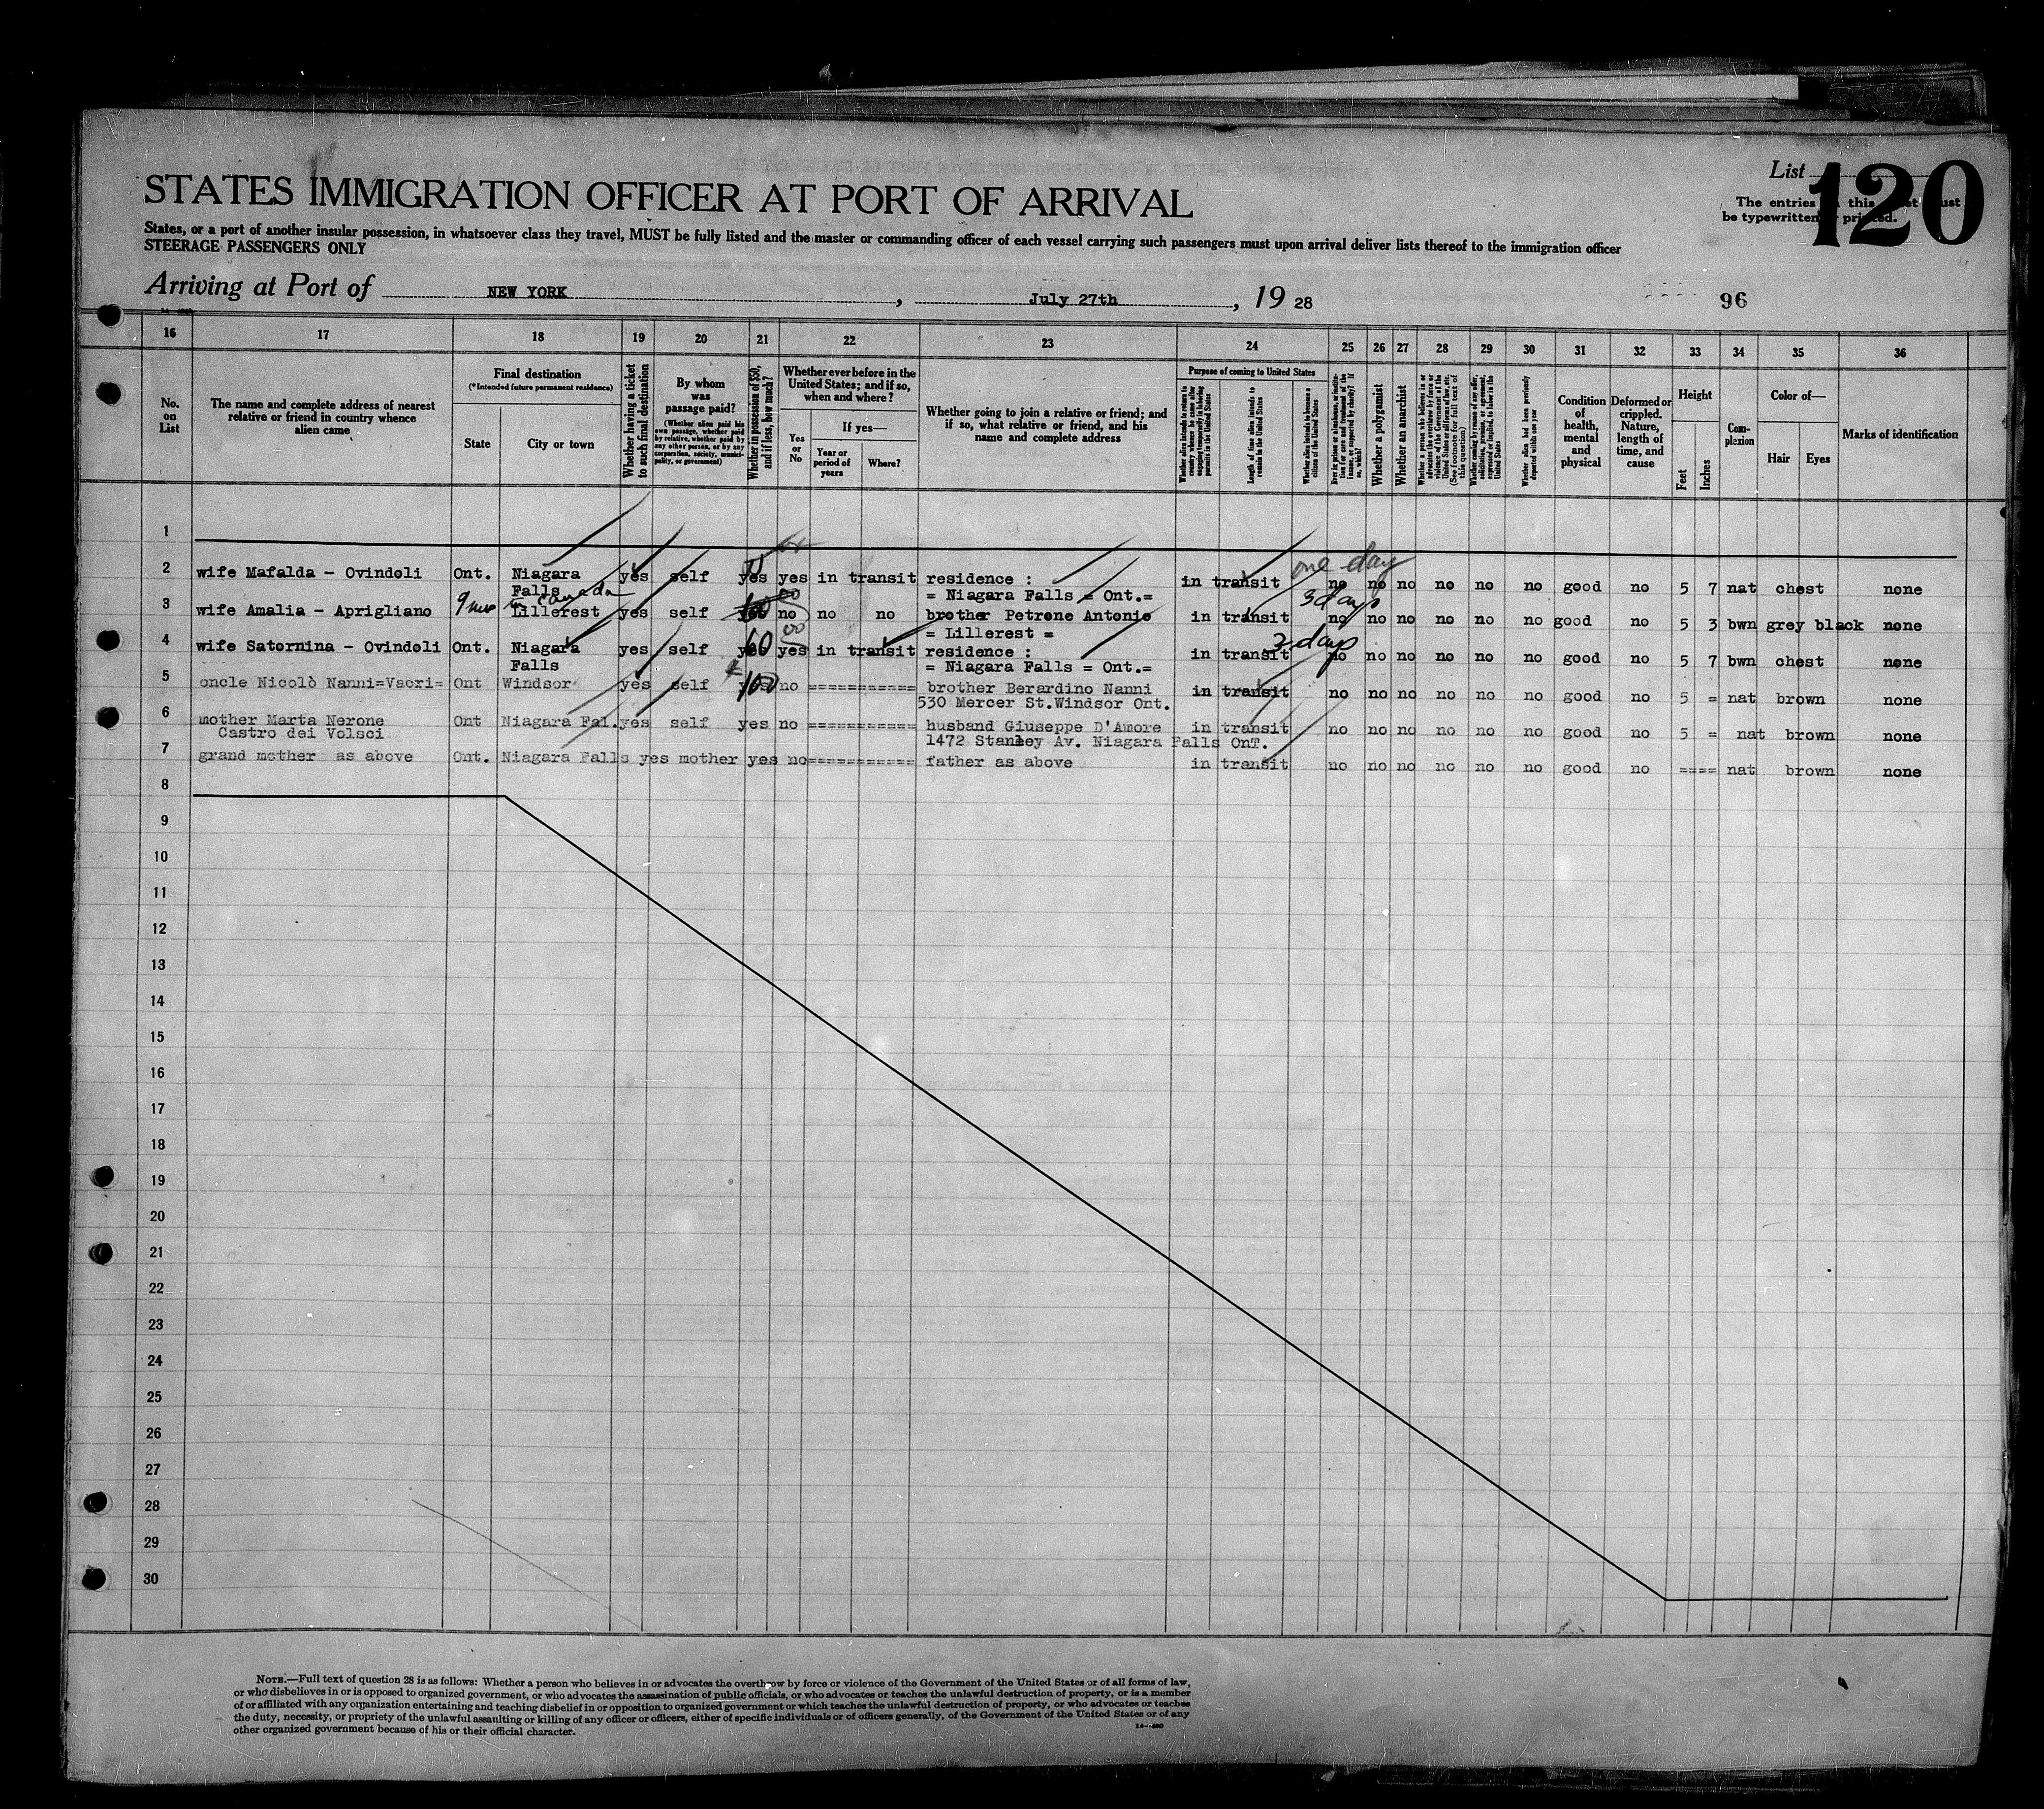 List 120
STATES IMMIGRATION OFFICER AT PORT OF ARRIVAL
The entries this must
be typewritten printed.
States, or a port of another insular possession, in whatsoever class they travel, MUST be fully listed and the master or commanding officer of each vessel carrying such passengers must upon arrival deliver lists thereof to the immigration officer
STEERAGE PASSENGERS ONLY
Arriving at Port of NEW YORK, July 27th, 19 28
96
16 17 18 19 20 21 22 23 24 25 26 27 28 29 30 31 32 33 34 35 36
No. on List
The name and complete address of nearest relative or friend in country whence alien came
Final destination
(*Intended future permanent residence)
State
City or town
Whether having a ticket to such final destination
By whom was passage paid?
(Whether alien paid his own passage, whether paid by relative, whether paid by any other person, or by any corporation, society, municipality, or government)
Whether in possession of $50, and if less, how much?
Whether ever before in the United States; and if so, when and where?
Yes or No
If yes—
Year or period of years
Where?
Whether going to join a relative or friend; and if so, what relative or friend, and his name and complete address
Purpose of coming to United States
Length of time alien intends to remain in the United States
Whether alien intends to become a citizen of the United States
Whether a polygamist
Whether an anarchist
Condition of health, mental and physical
Deformed or crippled. Nature, length of time, and cause
Height
Feet
Inches
Complexion
Color of—
Hair
Eyes
Marks of identification
1
one day
2 wife Mafalda - Ovindoli Ont. Niagara yes self yes yes in transit residence : in transit no no no no no no good no 5 7 nat chest none
Falls = Niagara Falls = Ont.=
in Canada 3 days
3 wife Amalia - Aprigliano Lillerest yes self 60 no no no brother Petrone Antonio in transit no no no no no no good no 5 3 bwn grey black none
= Lillerest =
days
4 wife Satornina - Ovindoli Ont. Niagara yes self 60 yes in transit residence : in transit no no no no no no good no 5 7 bwn chest none
Falls = Niagara Falls = Ont.=
5 oncle Nicolò Nanni=Vacri= Ont Windsor yes self 100 no =========== brother Berardino Nanni in transit no no no no no no good no 5 = nat brown none
530 Mercer St.Windsor Ont.
6 mother Marta Nerone Ont Niagara Fal. yes self yes no =========== husband Giuseppe D'Amore in transit no no no no no no good no 5 = nat brown none
Castro dei Volsci 1472 Stanley Av. Niagara Falls OnT.
7 grand mother as above Ont. Niagara Falls yes mother yes no=========== father as above in transit no no no no no no good no ==== nat brown none
8
9
10
11
12
13
14
15
16
17
18
19
20
21
22
23
24
25
26
27
28
29
30
NOTE.—Full text of question 28 is as follows: Whether a person who believes in or advocates the overthrow by force or violence of the Government of the United States or of all forms of law,
or who disbelieves in or is opposed to organized government, or who advocates the assassination of public officials, or who advocates or teaches the unlawful destruction of property, or is a member
of or affiliated with any organization entertaining and teaching disbelief in or opposition to organized government or which teaches the unlawful destruction of property, or who advocates or teaches
the duty, necessity, or propriety of the unlawful assaulting or killing of any officer or officers, either of specific individuals or of officers generally, of the Government of the United States or of any
other organized government because of his or their official character.